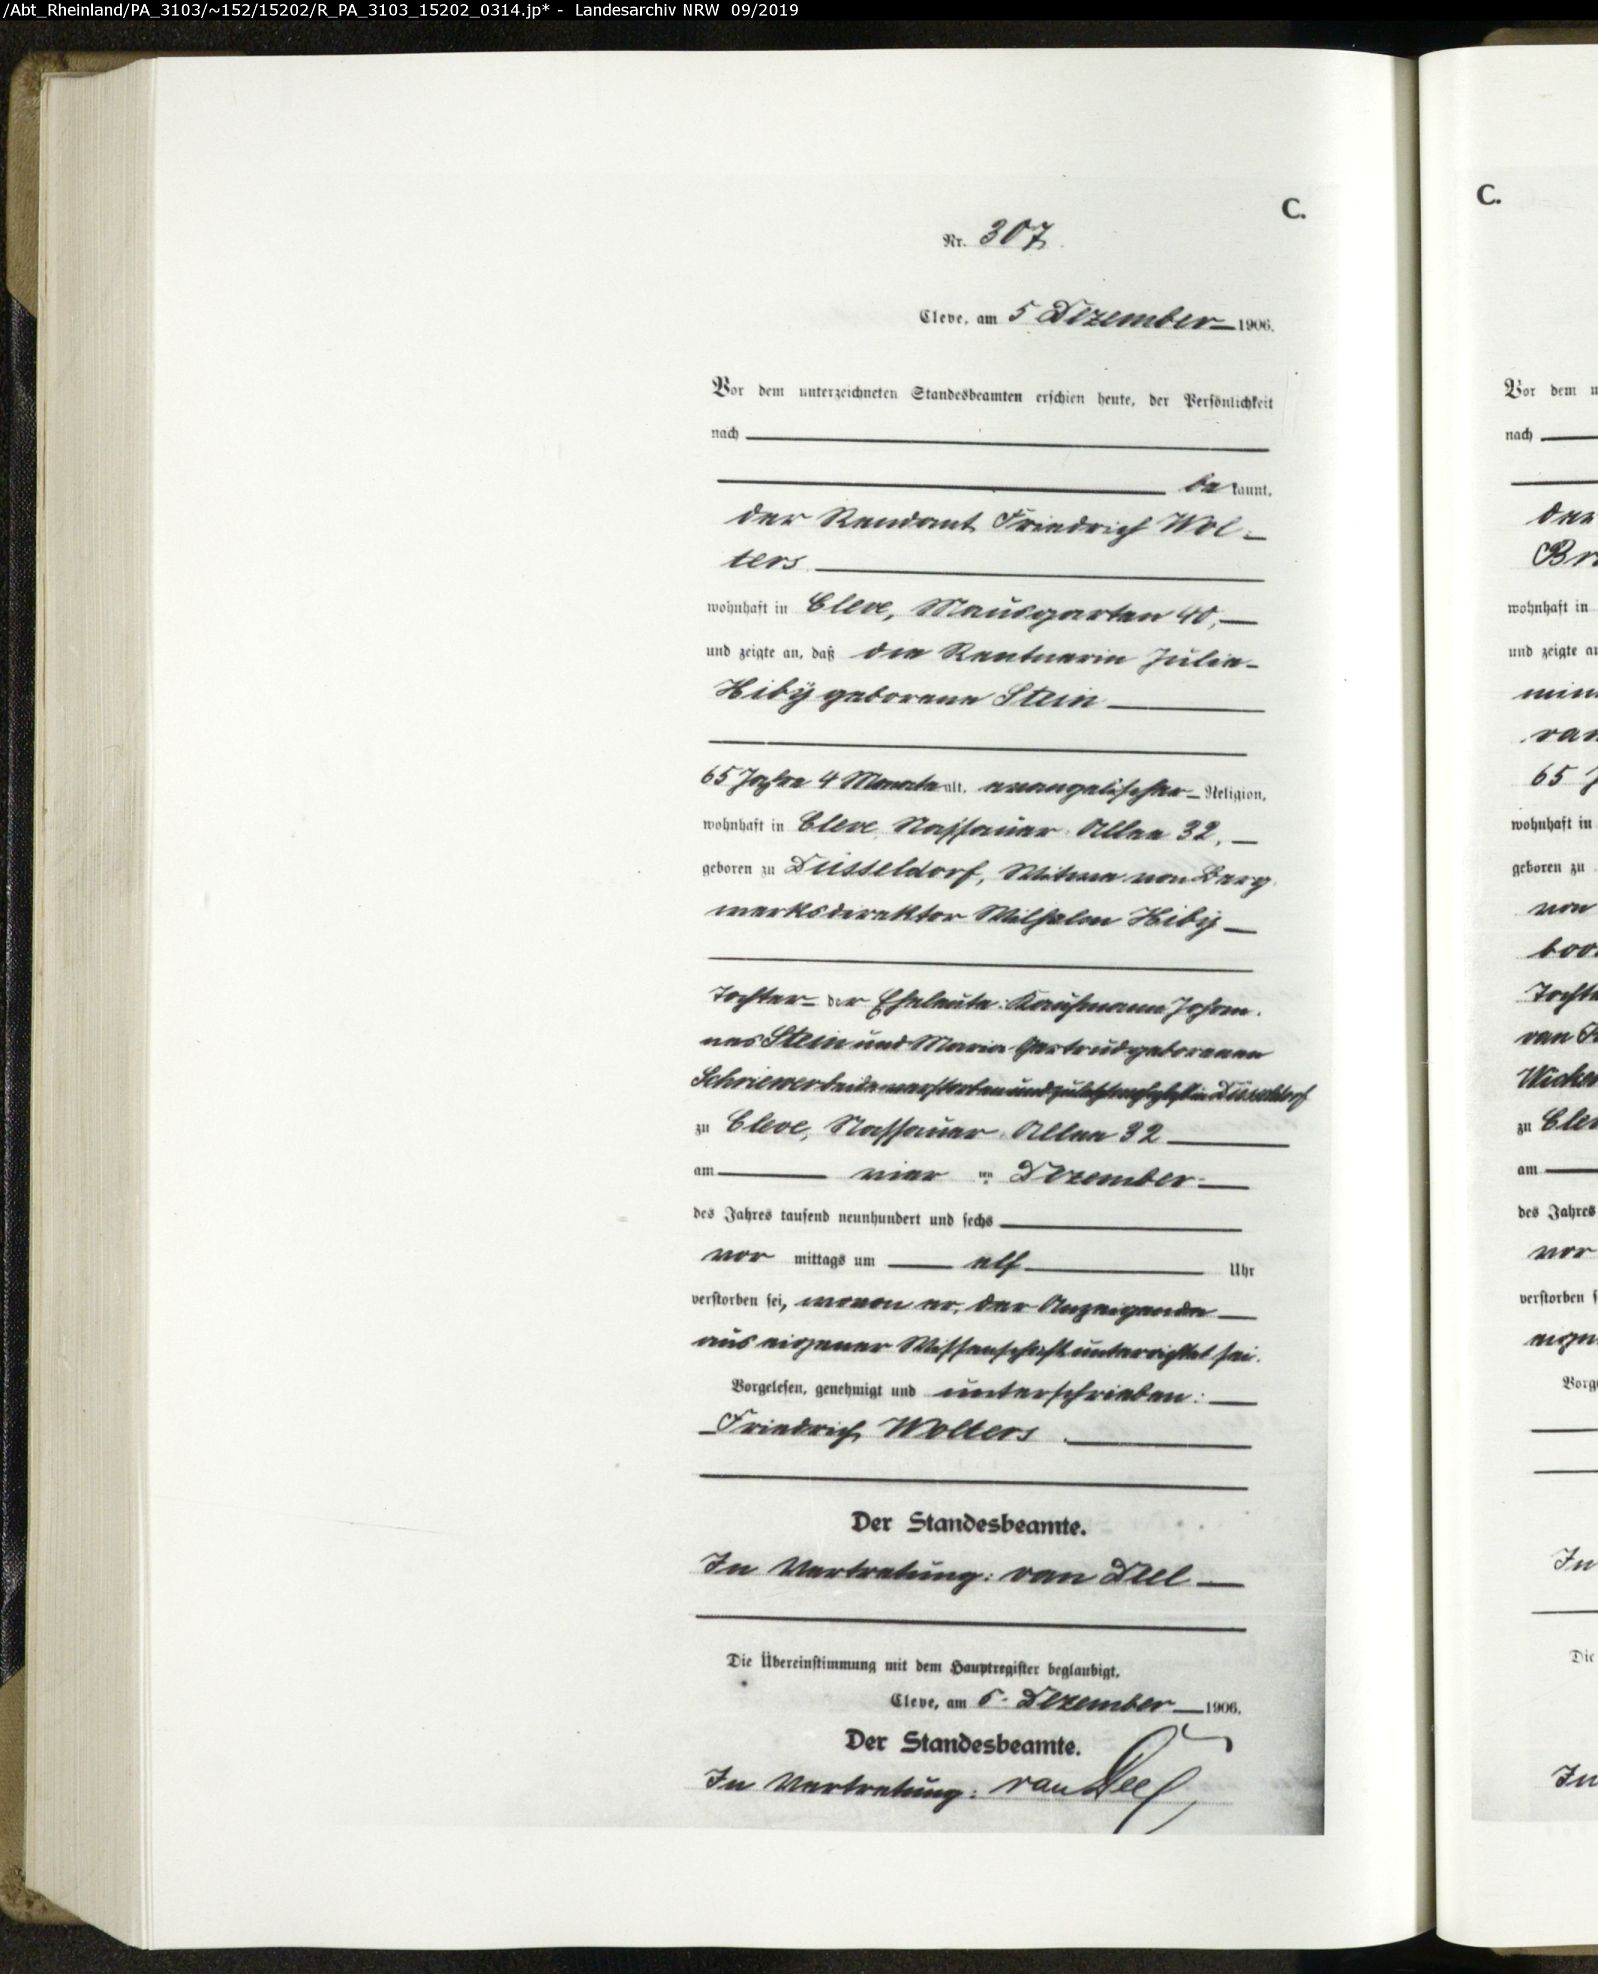 /Abt_Rheinland/PA_3103/~152/15202/R_PA_3103_15202_0314.jp* - Landesarchiv NRW 09/2019
C.
Nr. 307.
Cleve, am 5 Dezember 1906.
Vor dem unterzeichneten Standesbeamten erschien heute, der Persönlichkeit
nach
be kannt,
der Rendant Friedrich Wol-
ters
wohnhaft in Cleve, Mausgarten 40,
und zeigte an, daß die Rentnerin Julie
Hiby geborene Stein
65 Jahre 4 Monate alt, evangelischer Religion,
wohnhaft in Cleve, Nassauer Allee 32,
geboren zu Düsseldorf, Witwe von Berg
werksdirektor Wilhelm Hiby
Tochter der Eheleute: Kaufmann Johan-
nes Stein und Maria Gertrud geborenen
Schriewer beide verstorben und zuletzt wohnhaft in Düsseldorf
zu Cleve, Nassauer Allee 32
am vier ten Dezember
des Jahres tausend neunhundert und sechs
vor mittags um elf Uhr
verstorben sei, wovon er, der Anzeigende
aus eigener Wissenschaft unterrichtet sei.
Vorgelesen, genehmigt und unterschrieben:
Friedrich Wolters
Der Standesbeamte.
In Vertretung: van Deel
Die Übereinstimmung mit dem Hauptregister beglaubigt.
Cleve, am 5. Dezember 1906.
Der Standesbeamte.
In Vertretung: van Deel
C.
Vor dem
nach
der
wohnhaft in
und zeigte
65
wohnhaft in
geboren zu
von
zu Cleve
am
des Jahres
vor
verstorben
Die
In